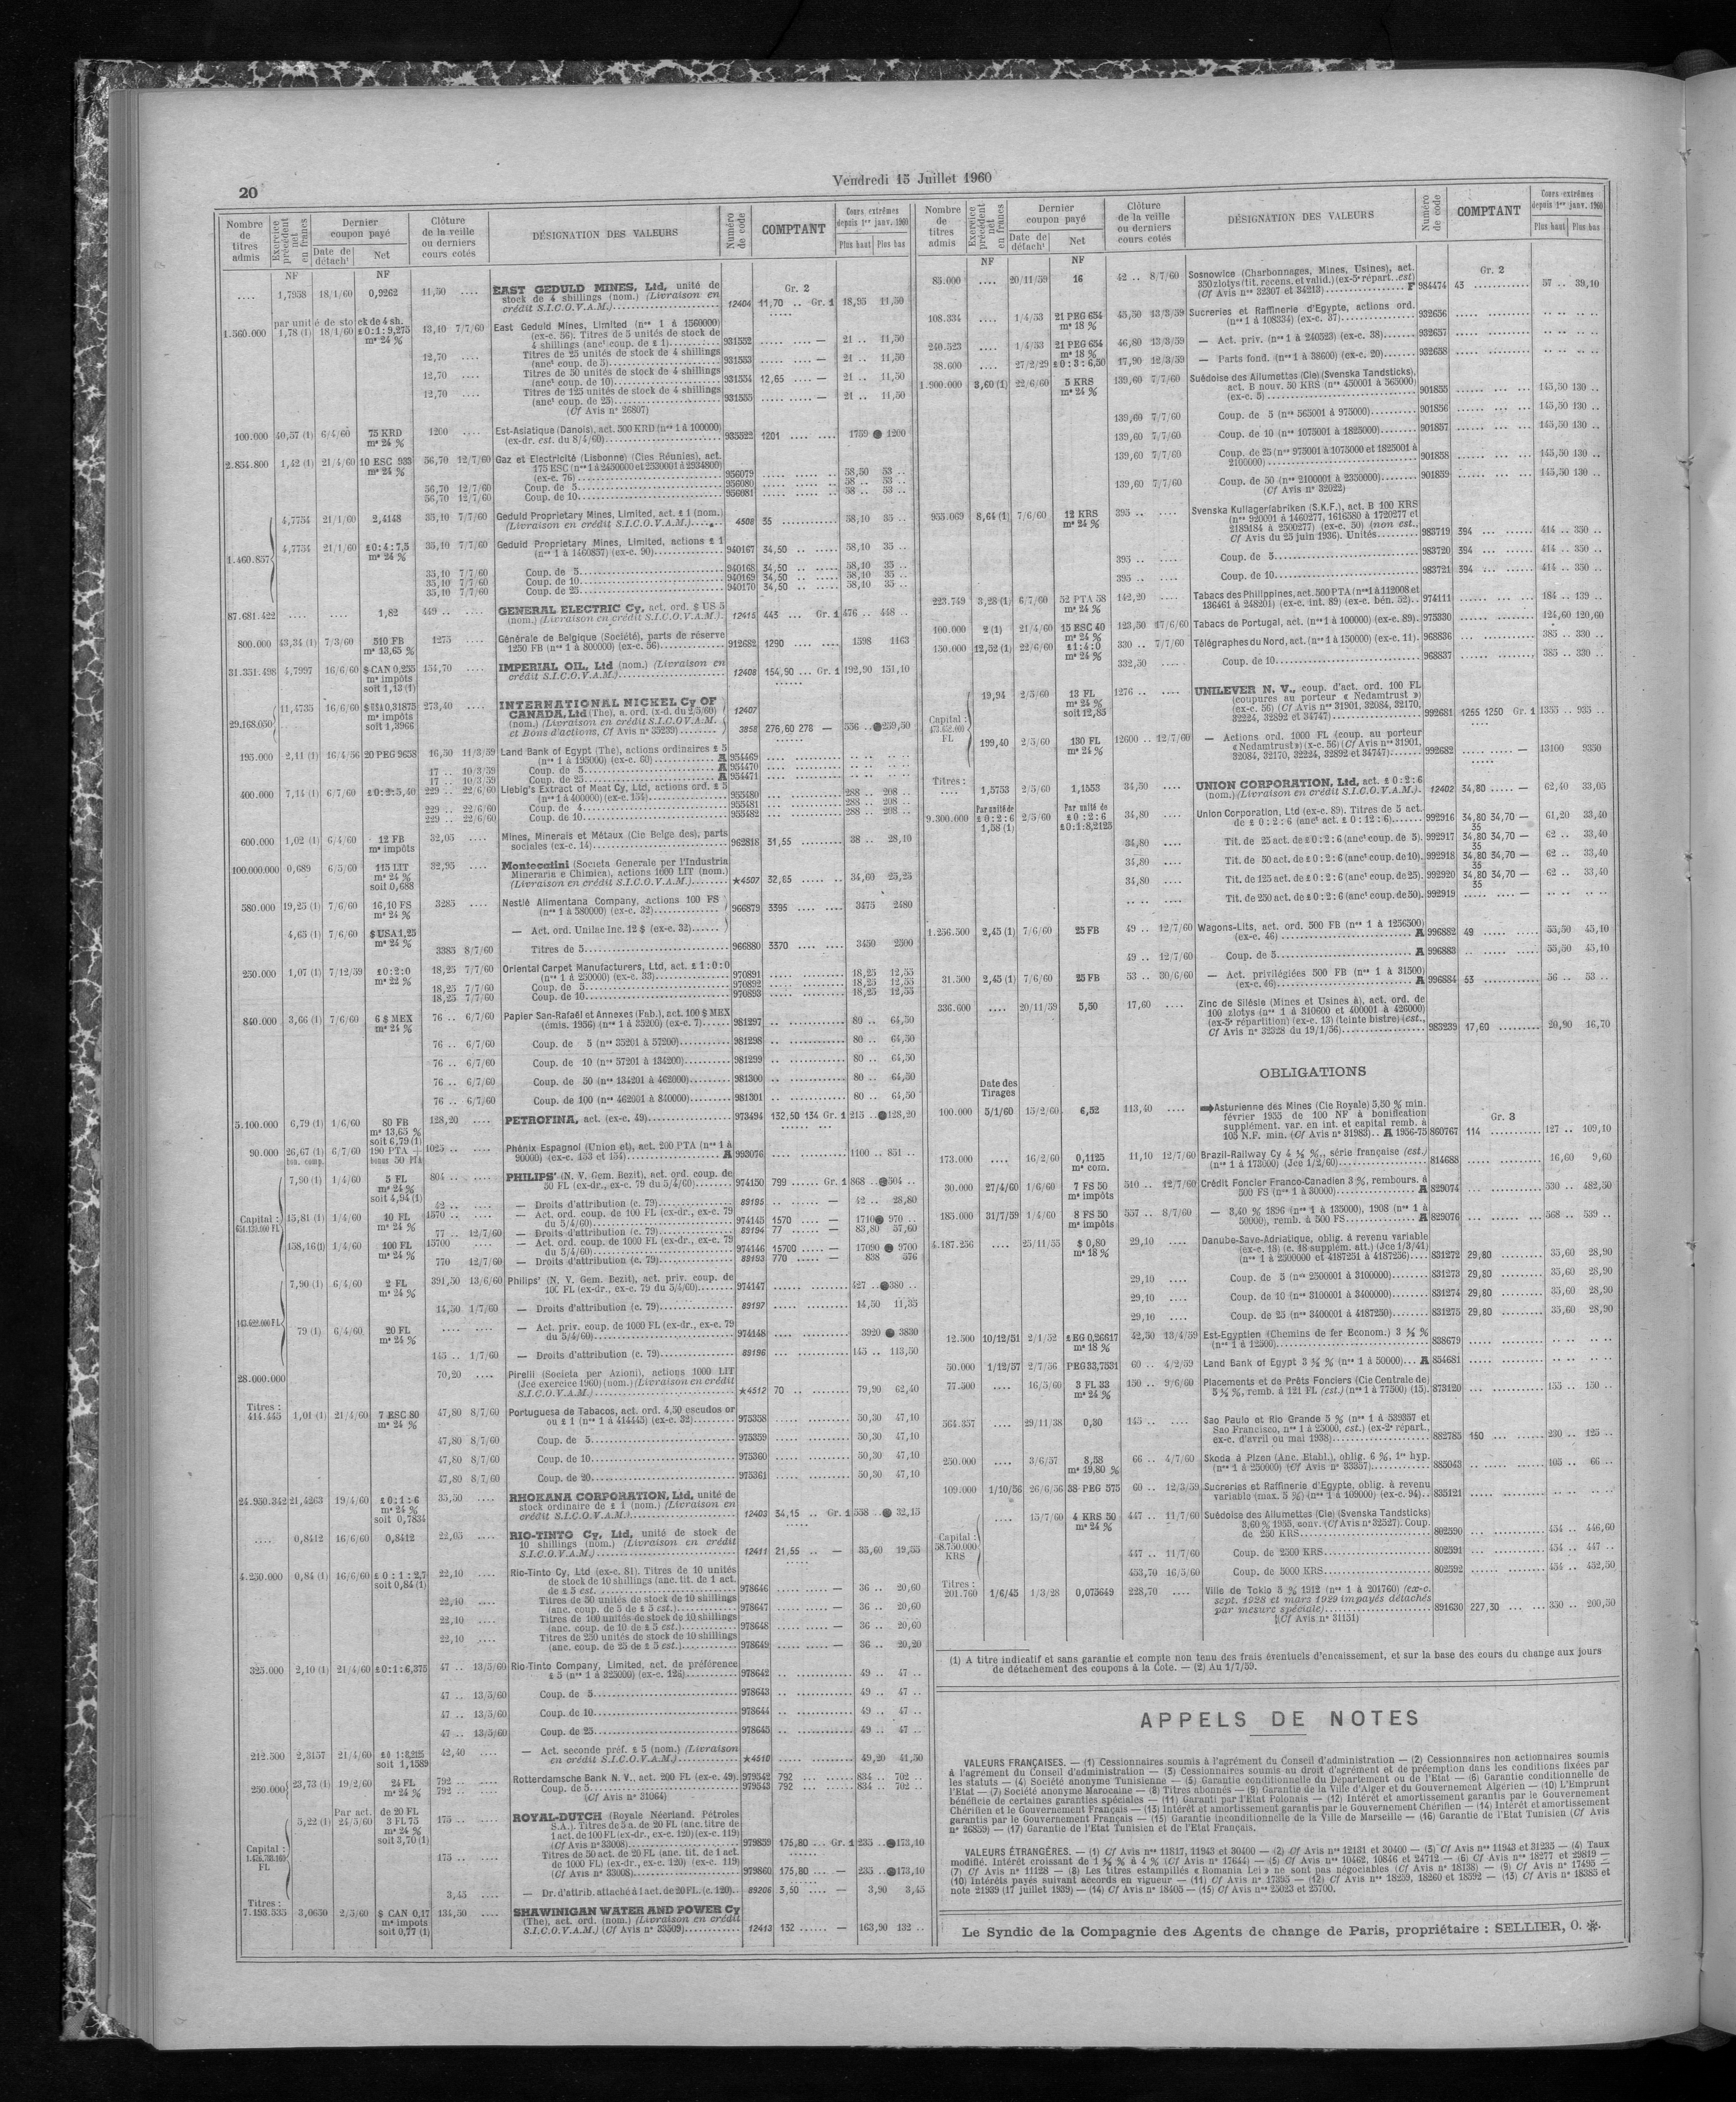 20
Vendredi 15 Juillet 1960
Nombre de titres admis
Exercice précédent net en francs
Dernier coupon payé
Date de détach<sup>t</sup>
Net
Clôture de la veille ou derniers cours cotés
DÉSIGNATION DES VALEURS
Numéro de code
COMPTANT
Cours extrêmes depuis 1er janv. 1960
Plus haut
Plus bas
NF
NF
Gr. 2
.... 1,7958 18/1/60 0,9262 11,50 .... EAST GEDULD MINES, Ltd, unité de
stock de 4 shillings (nom.) (Livraison en
crédit S.I.C.O.V.A.M.) 12404 11,70 .. Gr. 1 18,95 11,50
par unité de stock de 4 sh.
1.560.000 1,78 (1) 18/1/60 £0:1:9,275 m<sup>s</sup> 24 % 13,10 7/7/60 East Geduld Mines, Limited (nos 1 à 1560000)
(ex-c. 56). Titres de 5 unités de stock de
4 shillings (anct coup. de £ 1) 931552 — 21 .. 11,50
12,70 .... Titres de 25 unités de stock de 4 shillings
(anct coup. de 5) 931553 — 21 .. 11,50
12,70 .... Titres de 50 unités de stock de 4 shillings
(anct coup. de 10) 931554 12,65 .... — 21 .. 11,50
12,70 .... Titres de 125 unités de stock de 4 shillings
(anct coup. de 25) 931555 — 21 .. 11,50
(Cf Avis n° 26807)
100.000 40,57 (1) 6/4/60 75 KRD ms 24 % 1200 .... Est-Asiatique (Danois), act. 500 KRD (nos 1 à 100000)
(ex-dr. est. du 8/4/60) 935522 1201 .... 1759 ● 1200
2.834.800 1,42 (1) 21/4/60 10 ESC 933 ms 24 % 56,70 12/7/60 Gaz et Electricité (Lisbonne) (Cies Réunies), act.
175 ESC (nos 1 à 2450600 et 2530001 à 2934800)
(ex-c. 76) 956079 58,50 53 ..
56,70 12/7/60 Coup. de 5 956080 58 .. 53 ..
56,70 12/7/60 Coup. de 10 956081 58 .. 53 ..
4,7754 21/1/60 2,4148 35,10 7/7/60 Geduld Proprietary Mines, Limited, act. £ 1 (nom.)
(Livraison en crédit S.I.C.O.V.A.M.) 4508 35 58,10 35 ..
1.460.857 4,7754 21/1/60 £0:4:7,5 ms 24 % 35,10 7/7/60 Geduld Proprietary Mines, Limited, actions £ 1
(nos 1 à 1460857) (ex-c. 90) 940167 34,50 58,10 35 ..
35,10 7/7/60 Coup. de 5 940168 34,50 58,10 35 ..
35,10 7/7/60 Coup. de 10 940169 34,50 58,10 35 ..
35,10 7/7/60 Coup. de 25 940170 34,50 58,10 35 ..
87.681.422 .... .... 1,82 449 .. .... GENERAL ELECTRIC Cy, act. ord. $ US 5
(nom.) (Livraison en crédit S.I.C.O.V.A.M.) 12415 445 ... Gr. 1 476 .. 448 ..
800.000 43,34 (1) 7/3/60 510 FB ms 13,65 % 1275 .... Générale de Belgique (Société), parts de réserve
1250 FB (nos 1 à 800000) (ex-c. 56) 912682 1290 .... 1598 1163
31.351.498 4,7997 16/6/60 $CAN 0,255 ms impôts soit 1,13 (1) 154,70 .... IMPERIAL OIL, Ltd (nom.) (Livraison en
crédit S.I.C.O.V.A.M.) 12408 154,90 ... Gr. 1 192,90 151,10
29.168.050 11,4735 16/6/60 $USA 0,31875 ms impôts soit 1,3966 273,40 .... INTERNATIONAL NICKEL Cy OF
CANADA, Ltd (The), a. ord. (x-d. du 2/5/60) 12407
(nom.) (Livraison en crédit S.I.C.O.V.A.M.
et Bons d'actions, Cf Avis n° 35239) 3958 276,60 278 — 556 .. ●259,50
195.000 2,11 (1) 16/4/56 20 PEG 9658 16,50 11/3/59 Land Bank of Egypt (The), actions ordinaires £ 5
(nos 1 à 195000) (ex-c. 60) A 954469
17 .. 10/3/59 Coup. de 5 A 954470
17 .. 10/3/59 Coup. de 25 A 954471
400.000 7,14 (1) 6/7/60 £0:2:5,40 229 .. 22/6/60 Liebig's Extract of Meat Cy, Ltd, actions ord. £ 5
(nos 1 à 400000) (ex-c. 154) 955480 288 .. 208 ..
229 .. 22/6/60 Coup. de 4 955481 288 .. 208 ..
229 .. 22/6/60 Coup. de 10 955482 288 .. 208 ..
600.000 1,02 (1) 6/4/60 12 FB ms impôts 32,05 .... Mines, Minerais et Métaux (Cie Belge des), parts
sociales (ex-c. 14) 962818 31,55 38 .. 28,10
100.000.000 0,689 6/5/60 115 LIT ms 24 % soit 0,688 32,95 .... Montecatini (Societa Generale per l'Industria
Mineraria e Chimica), actions 1000 LIT (nom.)
(Livraison en crédit S.I.C.O.V.A.M.) ★4507 32,85 34,60 25,25
580.000 19,25 (1) 7/6/60 16,10 FS ms 24 % 3285 .... Nestlé Alimentana Company, actions 100 FS
(nos 1 à 580000) (ex-c. 32) 966879 3395 3475 2480
4,65 (1) 7/6/60 $USA 1,25 ms 24 % — Act. ord. Unilac Inc. 12 $ (ex-c. 32)
3385 8/7/60 Titres de 5 966880 3370 3450 2500
250.000 1,07 (1) 7/12/59 £0:2:0 ms 22 % 18,25 7/7/60 Oriental Carpet Manufacturers, Ltd, act. £ 1:0:0
(nos 1 à 250000) (ex-c. 33) 970891 18,25 12,55
18,25 7/7/60 Coup. de 5 970892 18,25 12,55
18,25 7/7/60 Coup. de 10 970893 18,25 12,55
840.000 3,66 (1) 7/6/60 6 $ MEX ms 24 % 76 .. 6/7/60 Papier San-Rafaël et Annexes (Fab.), act. 100 $ MEX
(émis. 1956) (nos 1 à 35200) (ex-c. 7) 981297 80 .. 64,50
76 .. 6/7/60 Coup. de 5 (nos 35201 à 57200) 981298 80 .. 64,50
76 .. 6/7/60 Coup. de 10 (nos 57201 à 134200) 981299 80 .. 64,50
76 .. 6/7/60 Coup. de 50 (nos 134201 à 462000) 981300 80 .. 64,50
76 .. 6/7/60 Coup. de 100 (nos 462001 à 840000) 981301 80 .. 64,50
5.100.000 6,79 (1) 1/6/60 80 FB ms 13,65 % soit 6,79 (1) 128,20 .... PETROFINA, act. (ex-c. 49) 973494 132,50 134 Gr. 1 215 .. ●128,20
90.000 26,67 (1) bon. comp. 6/7/60 190 PTA + bonus 50 PTA 1025 .. .... Phénix Espagnol (Union et), act. 200 PTA (nos 1 à
90000) (ex-c. 153 et 154) A 993076 1100 .. 851 ..
Capital : 451.123.000 FL 7,90 (1) 1/4/60 5 FL ms 24 % soit 4,94 (1) 804 .. .... PHILIPS' (N. V. Gem. Bezit), act. ord. coup. de
50 FL (ex-dr., ex-c. 79 du 5/4/60) 974150 799 Gr. 1 868 .. ●504 ..
42 .. .... — Droits d'attribution (c. 79) 89195 — 42 .. 28,80
15,81 (1) 1/4/60 10 FL ms 24 % 1570 .. .... — Act. ord. coup. de 100 FL (ex-dr., ex-c. 79
du 5/4/60) 974145 1570 — 1710● 970 ..
77 .. 12/7/60 — Droits d'attribution (c. 79) 89194 77 — 83,80 57,60
158,16 (1) 1/4/60 100 FL ms 24 % 15700 .... — Act. ord. coup. de 1000 FL (ex-dr., ex-c. 79
du 5/4/60) 974146 15700 — 17090 ● 9700
770 12/7/60 — Droits d'attribution (c. 79) 89193 770 — 838 576
143.622.000 FL 7,90 (1) 6/4/60 2 FL ms 24 % 391,50 13/6/60 Philips' (N. V. Gem. Bezit), act. priv. coup. de
100 FL (ex-dr., ex-c. 79 du 5/4/60) 974147 427 .. ●380 ..
14,50 1/7/60 — Droits d'attribution (c. 79) 89197 14,50 11,35
79 (1) 6/4/60 20 FL ms 24 % .... .... — Act. priv. coup. de 1000 FL (ex-dr., ex-c. 79
du 5/4/60) 974148 3920 ● 3830
145 .. 1/7/60 — Droits d'attribution (c. 79) 89196 145 .. 113,50
28.000.000 70,20 .... Pirelli (Societa per Azioni), actions 1000 LIT
(Jce exercice 1960) (nom.) (Livraison en crédit
S.I.C.O.V.A.M.) ★4512 70 .. 79,90 62,40
Titres :
414.445 1,01 (1) 21/4/60 7 ESC 80 ms 24 % 47,80 8/7/60 Portuguesa de Tabacos, act. ord. 4,50 escudos or
ou £ 1 (nos 1 à 414445) (ex-c. 32) 975358 50,30 47,10
47,80 8/7/60 Coup. de 5 975359 50,30 47,10
47,80 8/7/60 Coup. de 10 975360 50,30 47,10
47,80 8/7/60 Coup. de 20 975361 50,30 47,10
24.950.342 21,4263 19/4/60 £0:1:6 ms 24 % soit 0,7834 35,50 .... RHOKANA CORPORATION, Ltd, unité de
stock ordinaire de £ 1 (nom.) (Livraison en
crédit S.I.C.O.V.A.M.) 12403 34,15 .. Gr. 1 558 .. ● 32,15
.... 0,8412 16/6/60 0,8412 22,05 .... RIO-TINTO Cy, Ltd, unité de stock de
10 shillings (nom.) (Livraison en crédit
S.I.C.O.V.A.M.) 12411 21,55 .. — 35,60 19,55
4.250.000 0,84 (1) 16/6/60 £0:1:2,7 soit 0,84 (1) 22,10 .... Rio-Tinto Cy, Ltd (ex-c. 81). Titres de 10 unités
de stock de 10 shillings (anc. tit. de 1 act.
de £ 5 est.) 978646 — 36 .. 20,60
22,10 .... Titres de 50 unités de stock de 10 shillings
(anc. coup. de 5 de £ 5 est.) 978647 — 36 .. 20,60
22,10 .... Titres de 100 unités de stock de 10 shillings
(anc. coup. de 10 de £ 5 est.) 978648 — 36 .. 20,60
22,10 .... Titres de 250 unités de stock de 10 shillings
(anc. coup. de 25 de £ 5 est.) 978649 — 36 .. 20,20
325.000 2,10 (1) 21/4/60 £0:1:6,375 47 .. 13/5/60 Rio-Tinto Company, Limited, act. de préférence
£ 5 (nos 1 à 325000) (ex-c. 126) 978642 49 .. 47 ..
47 .. 13/5/60 Coup. de 5 978643 49 .. 47 ..
47 .. 13/5/60 Coup. de 10 978644 49 .. 47 ..
47 .. 13/5/60 Coup. de 25 978645 49 .. 47 ..
212.500 2,3157 21/4/60 £0 1:8,2125 soit 1,1589 42,40 .... — Act. seconde préf. £ 5 (nom.) (Livraison
en crédit S.I.C.O.V.A.M.) ★4510 49,20 41,50
250.000 23,73 (1) 19/2/60 24 FL ms 24 % 792 .. .... Rotterdamsche Bank N. V., act. 200 FL (ex-c. 49) 979542 792 834 .. 702 ..
792 .. .... Coup. de 5 979543 792 834 .. 702 ..
(Cf Avis n° 31064)
Par act. de 20 FL
Capital : 1.476.788.160 FL 5,22 (1) 24/5/60 3 FL 75 ms 24 % soit 3,70 (1) 175 .. .... ROYAL-DUTCH (Royale Néerland. Pétroles
S.A.). Titres de 5 a. de 20 FL (anc. titre de
1 act. de 100 FL (ex-dr., ex-c. 120) (ex-c. 119)
(Cf Avis n° 33008) 979859 175,80 ... Gr. 1 235 .. ●173,10
175 .. .... Titres de 50 act. de 20 FL (anc. tit. de 1 act.
de 1000 FL) (ex-dr., ex-c. 120) (ex-c. 119)
(Cf Avis n° 33008) 979860 175,80 ... — 235 .. ●173,10
3,45 .... — Dr. d'attrib. attaché à 1 act. de 20 FL. (c. 120) 89206 3,50 .... — 3,90 3,45
Titres :
7.193.535 3,0650 2/5/60 $ CAN 0,17 ms impôts soit 0,77 (1) 134,50 .... SHAWINIGAN WATER AND POWER Cy
(The), act. ord. (nom.) (Livraison en crédit
S.I.C.O.V.A.M.) (Cf Avis n° 33509) 12413 132 — 163,90 132 ..
Nombre de titres admis
Exercice précédent net en francs
Dernier coupon payé
Date de détacht
Net
Clôture de la veille ou derniers cours cotés
DÉSIGNATION DES VALEURS
Numéro de code
COMPTANT
Cours extrêmes depuis 1er janv. 1960
Plus haut
Plus bas
NF
NF
Gr. 2
85.000 .... 20/11/59 16 42 .. 8/7/60 Sosnowice (Charbonnages, Mines, Usines), act.
350 zlotys (tit. recens. et valid.) (ex-5e répart. est)
(Cf Avis nos 32307 et 34213) F 984474 43 57 .. 39,10
108.334 .... 1/4/53 21 PEG 654 ms 18 % 45,50 13/3/59 Sucreries et Raffinerie d'Egypte, actions ord.
(nos 1 à 108334) (ex-c. 37) 932656
240.523 .... 1/4/53 21 PEG 654 ms 18 % 46,80 13/3/59 — Act. priv. (nos 1 à 240523) (ex-c. 38) 932657
38.600 .... 27/2/29 £0:3:6,50 17,90 12/3/59 — Parts fond. (nos 1 à 38600) (ex-c. 20) 932658
1.900.000 3,60 (1) 22/6/60 5 KRS ms 24 % 139,60 7/7/60 Suédoise des Allumettes (Cie) (Svenska Tandsticks),
act. B nouv. 50 KRS (nos 450001 à 565000)
(ex-c. 5) 901855 145,50 130 ..
139,60 7/7/60 Coup. de 5 (nos 565001 à 975000) 901856 145,50 130 ..
139,60 7/7/60 Coup. de 10 (nos 1075001 à 1825000) 901857 145,50 130 ..
139,60 7/7/60 Coup. de 25 (nos 975001 à 1075000 et 1825001 à
2100000) 901858 145,50 130 ..
139,60 7/7/60 Coup. de 50 (nos 2100001 à 2350000) 901859 145,50 130 ..
(Cf Avis n° 32022)
955.069 8,64 (1) 7/6/60 12 KRS ms 24 % 395 .. .... Svenska Kullagerfabriken (S.K.F.), act. B 100 KRS
(nos 920001 à 1460277, 1616580 à 1720277 et
2189184 à 2500277) (ex-c. 50) (non est.,
Cf Avis du 25 juin 1936). Unités 983719 394 414 .. 350 ..
395 .. .... Coup. de 5 983720 394 414 .. 350 ..
395 .. .... Coup. de 10 983721 394 414 .. 350 ..
223.749 3,28 (1) 6/7/60 52 PTA 58 ms 24 % 142,20 .... Tabacs des Philippines, act. 500 PTA (nos 1 à 112008 et
136461 à 248201) (ex-c. int. 89) (ex-c. bén. 52) 974111 184 .. 139 ..
100.000 2 (1) 21/4/60 15 ESC 40 ms 24 % 123,50 17/6/60 Tabacs de Portugal, act. (nos 1 à 100000) (ex-c. 89) 975330 124,60 120,60
150.000 12,52 (1) 22/6/60 £1:4:0 ms 24 % 330 .. 7/7/60 Télégraphes du Nord, act. (nos 1 à 150000) (ex-c. 11) 968836 385 .. 330 ..
332,50 Coup. de 10 968837 385 .. 330 ..
Capital : FL 19,94 2/5/60 13 FL ms 24 % soit 12,85 1276 .. .... UNILEVER N. V., coup. d'act. ord. 100 FL
(coupures au porteur « Nedamtrust »)
(ex-c. 56) (Cf Avis nos 31901, 32084, 32170,
32224, 32892 et 34747) 992681 1255 1250 Gr. 1 1355 .. 935 ..
199,40 2/5/60 130 FL ms 24 % 12600 .. 12/7/60 — Actions ord. 1000 FL (coup. au porteur
« Nedamtrust ») (x-c. 56) (Cf Avis nos 31901,
32084, 32170, 32224, 32892 et 34747) 992682 — 13100 9350
Titres :
.... 1,5753 2/5/60 1,1553 34,50 .... UNION CORPORATION, Ltd, act. £ 0:2:6
(nom.) (Livraison en crédit S.I.C.O.V.A.M.) 12402 34,80 — 62,40 33,05
9.300.000 Par unité de £0:2:6 1,58 (1) 2/5/60 Par unité de £0:2:6 £0:1:8,2125 34,80 .... Union Corporation, Ltd (ex-c. 89). Titres de 5 act.
de £ 0:2:6 (anct act. £ 0:12:6) 992916 34,80 34,70 — 35 61,20 33,40
34,80 .... Tit. de 25 act. de £ 0:2:6 (anct coup. de 5) 992917 34,80 34,70 — 35 62 .. 33,40
34,80 .... Tit. de 50 act. de £ 0:2:6 (anct coup. de 10) 992918 34,80 34,70 — 35 62 .. 33,40
34,80 .... Tit. de 125 act. de £ 0:2:6 (anct coup. de 25) 992920 34,80 34,70 — 35 62 .. 33,40
.. .. .... Tit. de 250 act. de £ 0:2:6 (anct coup. de 50) 992919 —
1.256.500 2,45 (1) 7/6/60 25 FB 49 .. 12/7/60 Wagons-Lits, act. ord. 500 FB (nos 1 à 1256500)
(ex-c. 46) A 996882 49 55,50 45,10
49 .. 12/7/60 Coup. de 5 A 996883 55,50 45,10
31.500 2,45 (1) 7/6/60 25 FB 53 .. 30/6/60 — Act. privilégiées 500 FB (nos 1 à 31500)
(ex-c. 46) A 996884 53 56 .. 53 ..
336.600 .... 20/11/59 5,50 17,60 .... Zinc de Silésie (Mines et Usines à), act. ord. de
100 zlotys (nos 1 à 310600 et 400001 à 426000)
(ex-5e répartition) (ex-c. 13) (teinte bistre) (est.,
Cf Avis n° 32328 du 19/1/56) 983239 17,60 20,90 16,70
OBLIGATIONS
Date des Tirages
Gr. 3
100.000 5/1/60 15/2/60 6,52 113,40 .... ➡Asturienne des Mines (Cie Royale) 5,50 % min.
février 1955 de 100 NF à bonification
supplément. var. en int. et capital remb. à
105 N.F. min. (Cf Avis n° 31983).. A 1956-75 860767 114 127 .. 109,10
173.000 .... 16/2/60 0,1125 ms com. 11,10 12/7/60 Brazil-Railway Cy 4 ½ %., série française (est.)
(nos 1 à 173000) (Jce 1/2/60) 814688 16,60 9,60
30.000 27/4/60 1/6/60 7 FS 50 ms impôts 510 .. 12/7/60 Crédit Foncier Franco-Canadien 3 %, rembours. à
500 FS (nos 1 à 30000) A 829074 530 .. 482,50
185.000 31/7/59 1/4/60 8 FS 50 ms impôts 557 .. 8/7/60 — 3,40 % 1896 (nos 1 à 135000), 1908 (nos 1 à
50000), remb. à 500 FS A 829076 568 .. 539 ..
4.187.256 .... 25/11/55 $ 0,80 ms 18 % 29,10 .... Danube-Save-Adriatique, oblig. à revenu variable
(ex-c. 18) (c. 18 supplém. att.) (Jce 1/3/41)
(nos 1 à 2500000 et 4187251 à 4187256) 831272 29,80 35,60 28,90
29,10 .... Coup. de 5 (nos 2500001 à 3100000) 831273 29,80 35,60 28,90
29,10 .... Coup. de 10 (nos 3100001 à 3400000) 831274 29,80 35,60 28,90
29,10 .... Coup. de 25 (nos 3400001 à 4187250) 831275 29,80 35,60 28,90
12.500 10/12/51 2/1/52 £EG 0,26617 ms 18 % 42,30 13/4/59 Est-Egyptien (Chemins de fer Econom.) 3 ½ %
(nos 1 à 12500) 838679
50.000 1/12/57 2/7/56 PEG 33,7531 60 .. 4/2/59 Land Bank of Egypt 3 ½ % (nos 1 à 50000) A 854681
77.500 .... 16/5/60 3 FL 33 ms 24 % 150 .. 9/6/60 Placements et de Prêts Fonciers (Cie Centrale de)
5 ½ %, remb. à 121 FL (est.) (nos 1 à 77500) (15) 873120 155 .. 150 ..
564.357 .... 29/11/38 0,30 145 .. .... Sao Paulo et Rio Grande 5 % (nos 1 à 539357 et
Sao Francisco, nos 1 à 25000, est.) (ex-2e répart.,
ex-c. d'avril ou mai 1938) 882785 150 230 .. 125 ..
250.000 .... 3/6/57 8,58 ms 19,80 % 66 .. 4/7/60 Skoda à Plzen (Anc. Etabl.), oblig. 6 %, 1re hyp.
(nos 1 à 250000) (Cf Avis n° 33357) 885043 105 .. 66 ..
109.000 1/10/56 26/6/56 38 PEG 575 60 .. 12/3/59 Sucreries et Raffinerie d'Egypte, oblig. à revenu
variable (max. 5 %) (nos 1 à 109000) (ex-c. 94) 835121
Capital : 58.750.000 KRS .... 15/7/60 4 KRS 50 ms 24 % 447 .. 11/7/60 Suédoise des Allumettes (Cie) (Svenska Tandsticks)
3,60 % 1955, conv. (Cf Avis n° 32527). Coup.
de 250 KRS 802590 454 .. 446,60
447 .. 11/7/60 Coup. de 2500 KRS 802591 454 .. 447 ..
453,70 16/5/60 Coup. de 5000 KRS 802592 454 .. 432,50
Titres :
201.760 1/6/45 1/3/28 0,075649 228,70 .... Ville de Tokio 5 % 1912 (nos 1 à 201760) (ex-c.
sept. 1928 et mars 1929 impayés détachés
par mesure spéciale) 891630 227,30 350 .. 200,50
(Cf Avis n° 31151)
(1) A titre indicatif et sans garantie et compte non tenu des frais éventuels d'encaissement, et sur la base des cours du change aux jours
de détachement des coupons à la Cote. — (2) Au 1/7/59.
APPELS DE NOTES
VALEURS FRANÇAISES. — (1) Cessionnaires soumis à l'agrément du Conseil d'administration — (2) Cessionnaires non actionnaires soumis
à l'agrément du Conseil d'administration — (3) Cessionnaires soumis au droit d'agrément et de préemption dans les conditions fixées par
les statuts — (4) Société anonyme Tunisienne — (5) Garantie conditionnelle du Département ou de l'Etat — (6) Garantie conditionnelle de
l'Etat — (7) Société anonyme Marocaine — (8) Titres abonnés — (9) Garantie de la Ville d'Alger et du Gouvernement Algérien — (10) L'Emprunt
bénéficie de certaines garanties spéciales — (11) Garanti par l'Etat Polonais — (12) Intérêt et amortissement garantis par le Gouvernement
Chérifien et le Gouvernement Français — (13) Intérêt et amortissement garantis par le Gouvernement Chérifien — (14) Intérêt et amortissement
garantis par le Gouvernement Français — (15) Garantie inconditionnelle de la Ville de Marseille — (16) Garantie de l'Etat Tunisien (Cf Avis
n° 26859) — (17) Garantie de l'Etat Tunisien et de l'Etat Français.
VALEURS ÉTRANGÈRES. — (1) Cf Avis nos 11817, 11943 et 30400 — (2) Cf Avis nos 12131 et 30400 — (3) Cf Avis nos 11943 et 31235 — (4) Taux
modifié. Intérêt croissant de 1 ½ % à 4 % (Cf Avis n° 17644) — (5) Cf Avis nos 10462, 10846 et 24712 — (6) Cf Avis nos 18277 et 29819 —
(7) Cf Avis n° 11128 — (8) Les titres estampillés « Romania Lei » ne sont pas négociables (Cf Avis n° 18138) — (9) Cf Avis n° 17495 —
(10) Intérêts payés suivant accords en vigueur — (11) Cf Avis n° 17395 — (12) Cf Avis nos 18259, 18260 et 18392 — (13) Cf Avis nos 18385 et
note 21939 (17 juillet 1939) — (14) Cf Avis n° 18405 — (15) Cf Avis nos 25023 et 25700.
Le Syndic de la Compagnie des Agents de change de Paris, propriétaire : SELLIER, O. ※.